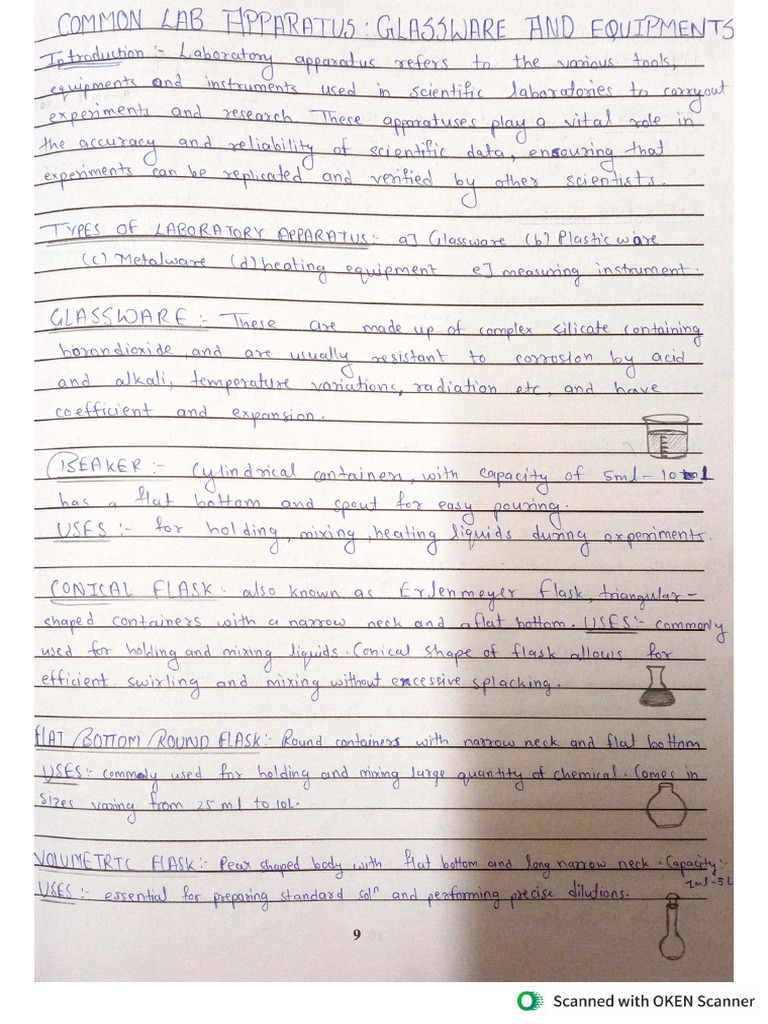 COMMON LAB APPARATUS : GLASSWARE AND EQUIPMENTS
Introduction :- Laboratory apparatus refers to the various tools,
equipments and instruments used in scientific laboratories to carryout
experiments and research. These apparatuses play a vital role in
the accuracy and reliability of scientific data, ensouring that
experiments can be replicated and verified by other scientists.
TYPES OF LABORATORY APPARATUS :- a] Glassware (b) Plastic ware
(c) Metalware (d) heating equipment e] measuring instrument.
GLASSWARE :- These are made up of complex silicate containing
borondioxide, and are usually resistant to corrosion by acid
and alkali, temperature variations, radiation etc, and have
coefficient and expansion.
BEAKER :- Cylindrical containers, with capacity of 5ml - 10 L
has a flat bottom and spout for easy pouring.
USES :- for holding, mixing, heating liquids during experiments.
CONICAL FLASK : also known as Erlenmeyer flask, triangular -
shaped containers with a narrow neck and a flat bottom. USES :- commonly
used for holding and mixing liquids. Conical shape of flask allows for
efficient swirling and mixing without excessive splacking.
FLAT /BOTTOM /ROUND FLASK :- Round containers with narrow neck and flat bottom
USES :- commonly used for holding and mixing large quantity of chemical. Comes in
sizes varing from 25 ml to 10L.
VOLUMETRIC FLASK :- Pear shaped body with flat bottom and long narrow neck. Capacity :-
1ml-5L
USES :- essential for preparing standard solⁿ and performing precise dilutions.
9
Scanned with OKEN Scanner